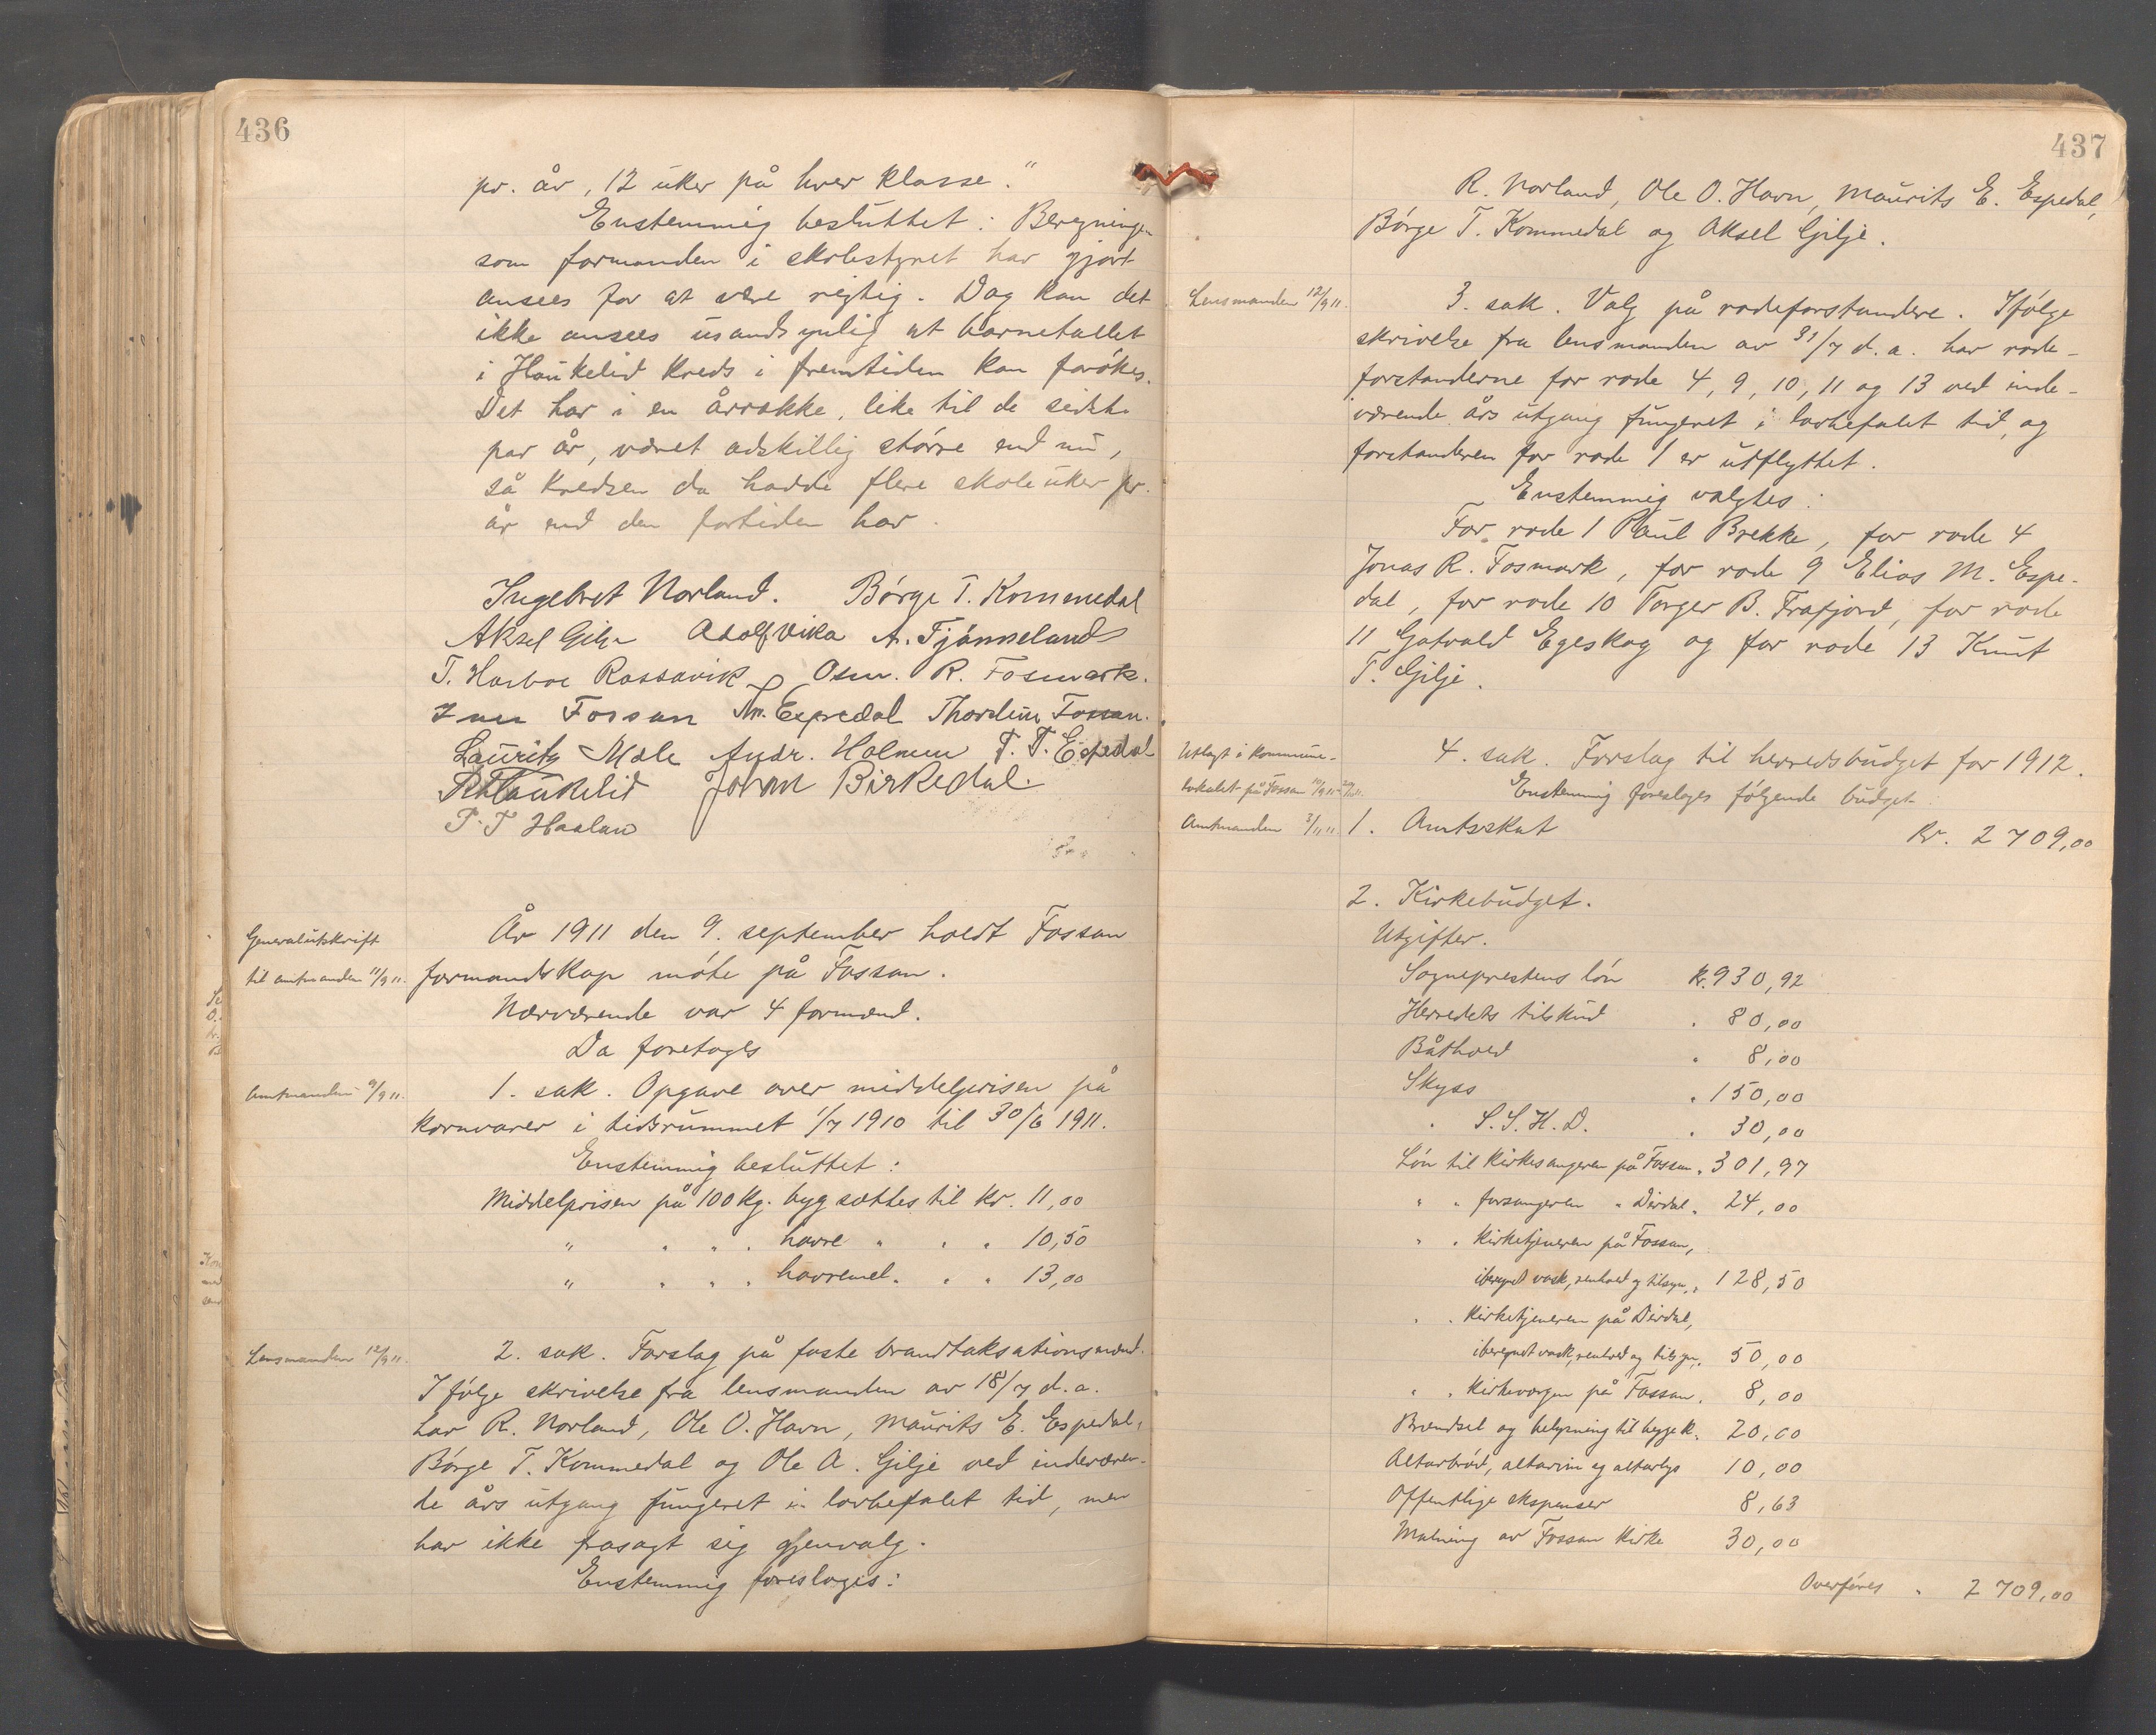 436
pr. år, 12 uker på hver klasse."
Enstemmig besluttet: Beregningen
som formanden i skolestyret har gjort
ansees for at være rigtig. Dog kan det
ikke ansees usandsynlig at barnetallet
i Haukelid kreds i fremtiden kan forökes.
Det har i en årrække, like til de sidste
par år, været adskillig större end nu,
så kredsen da hadde flere skoleuker pr.
år end den fortiden har.
Ingebret Norland. Börge T. Kommedal
Aksel Gilje Adolf Vika A. Tjånneland
T. Harboe Rossavik Osm. R. Fosmark.
Fossan M. Espedal Thordein Fossan.
Lauritz Mæle Andr. Holmen T. T. Espedal
Haukelid Johan Birkedal.
T. T Haaland
Generalutskrift
til amtmanden 11/9 11.
År 1911 den 9. september holdt Fossan
formandskap möte på Fossan.
Nærværende var 4 formænd.
Da foretoges
Amtmanden 9/9 11.
1. sak. Opgave over middelprisen på
kornvarer i tidsrummet 1/7 1910 til 30/6 1911.
Enstemmig besluttet:
Middelprisen på 100 kg. byg sættes til kr. 11,00
" " " " havre " " " 10,50
" " " " havremel " " " 13,00
Lensmanden 12/9 11.
2. sak. Forslag på faste brandtaksationsmænd.
Ifölge skrivelse fra lensmanden av 18/7 d.a.
har R. Norland, Ole O. Havn, Maurits E. Espedal,
Börge T. Kommedal og Ole A. Gilje ved indeværen-
de års utgang fungeret i lovbefalet tid, men
har ikke frasagt sig gjenvalg.
Enstemmig foresloges:
437
R. Norland, Ole O. Havn, Maurits E. Espedal,
Börge T. Kommedal og Aksel Gilje.
Lensmanden 12/9 11.
3. sak. Valg på rodeforstandere. Ifölge
skrivelse fra lensmanden av 31/7 d.a. har rode-
forstanderne for rode 4, 9, 10, 11 og 13 ved inde-
værende års utgang fungeret i lovbefalet tid, og
forstanderen for rode 1 er utflyttet.
Enstemmig valgtes:
For rode 1 Paul Brekke, for rode 4
Jonas R. Fosmark, for rode 9 Elias M. Espe-
dal, for rode 10 Torger B. Frafjord, for rode
11 Gotvald Egeskog og for rode 13 Knut
T. Gilje.
Utlagt i kommune-
lokalet på Fossan
Amtmanden 3/11 11
4. sak. Forslag til herredsbudget for 1912.
Enstemmig foresloges fölgende budget:
1. Amtsskat Kr. 2 709,00
2. Kirkebudget.
Utgifter.
Sogneprestens lön kr. 930,92
Herredets tilskud " 80,00
Båthold " 8,00
Skyss " 150,00
" S.S.H.D. " 30,00
Lön til kirkesangeren på Fossan " 301,97
" " forsangeren " Dirdal " 24,00
" " kirketjeneren på Fossan,
iberegnet vask, renhold og tilsyn, " 128,50
" " kirketjeneren på Dirdal,
iberegnet vask, renhold og tilsyn, 50,00
" " kirkevergen på Fossan " 8,00
Brændsel og belysning til begge k. 20,00
Altarbröd, altarvin og altarlys 10,00
Offentlige ekspenser 8,63
Malning av Fossan kirke 30,00
Overföres " 2 709,00